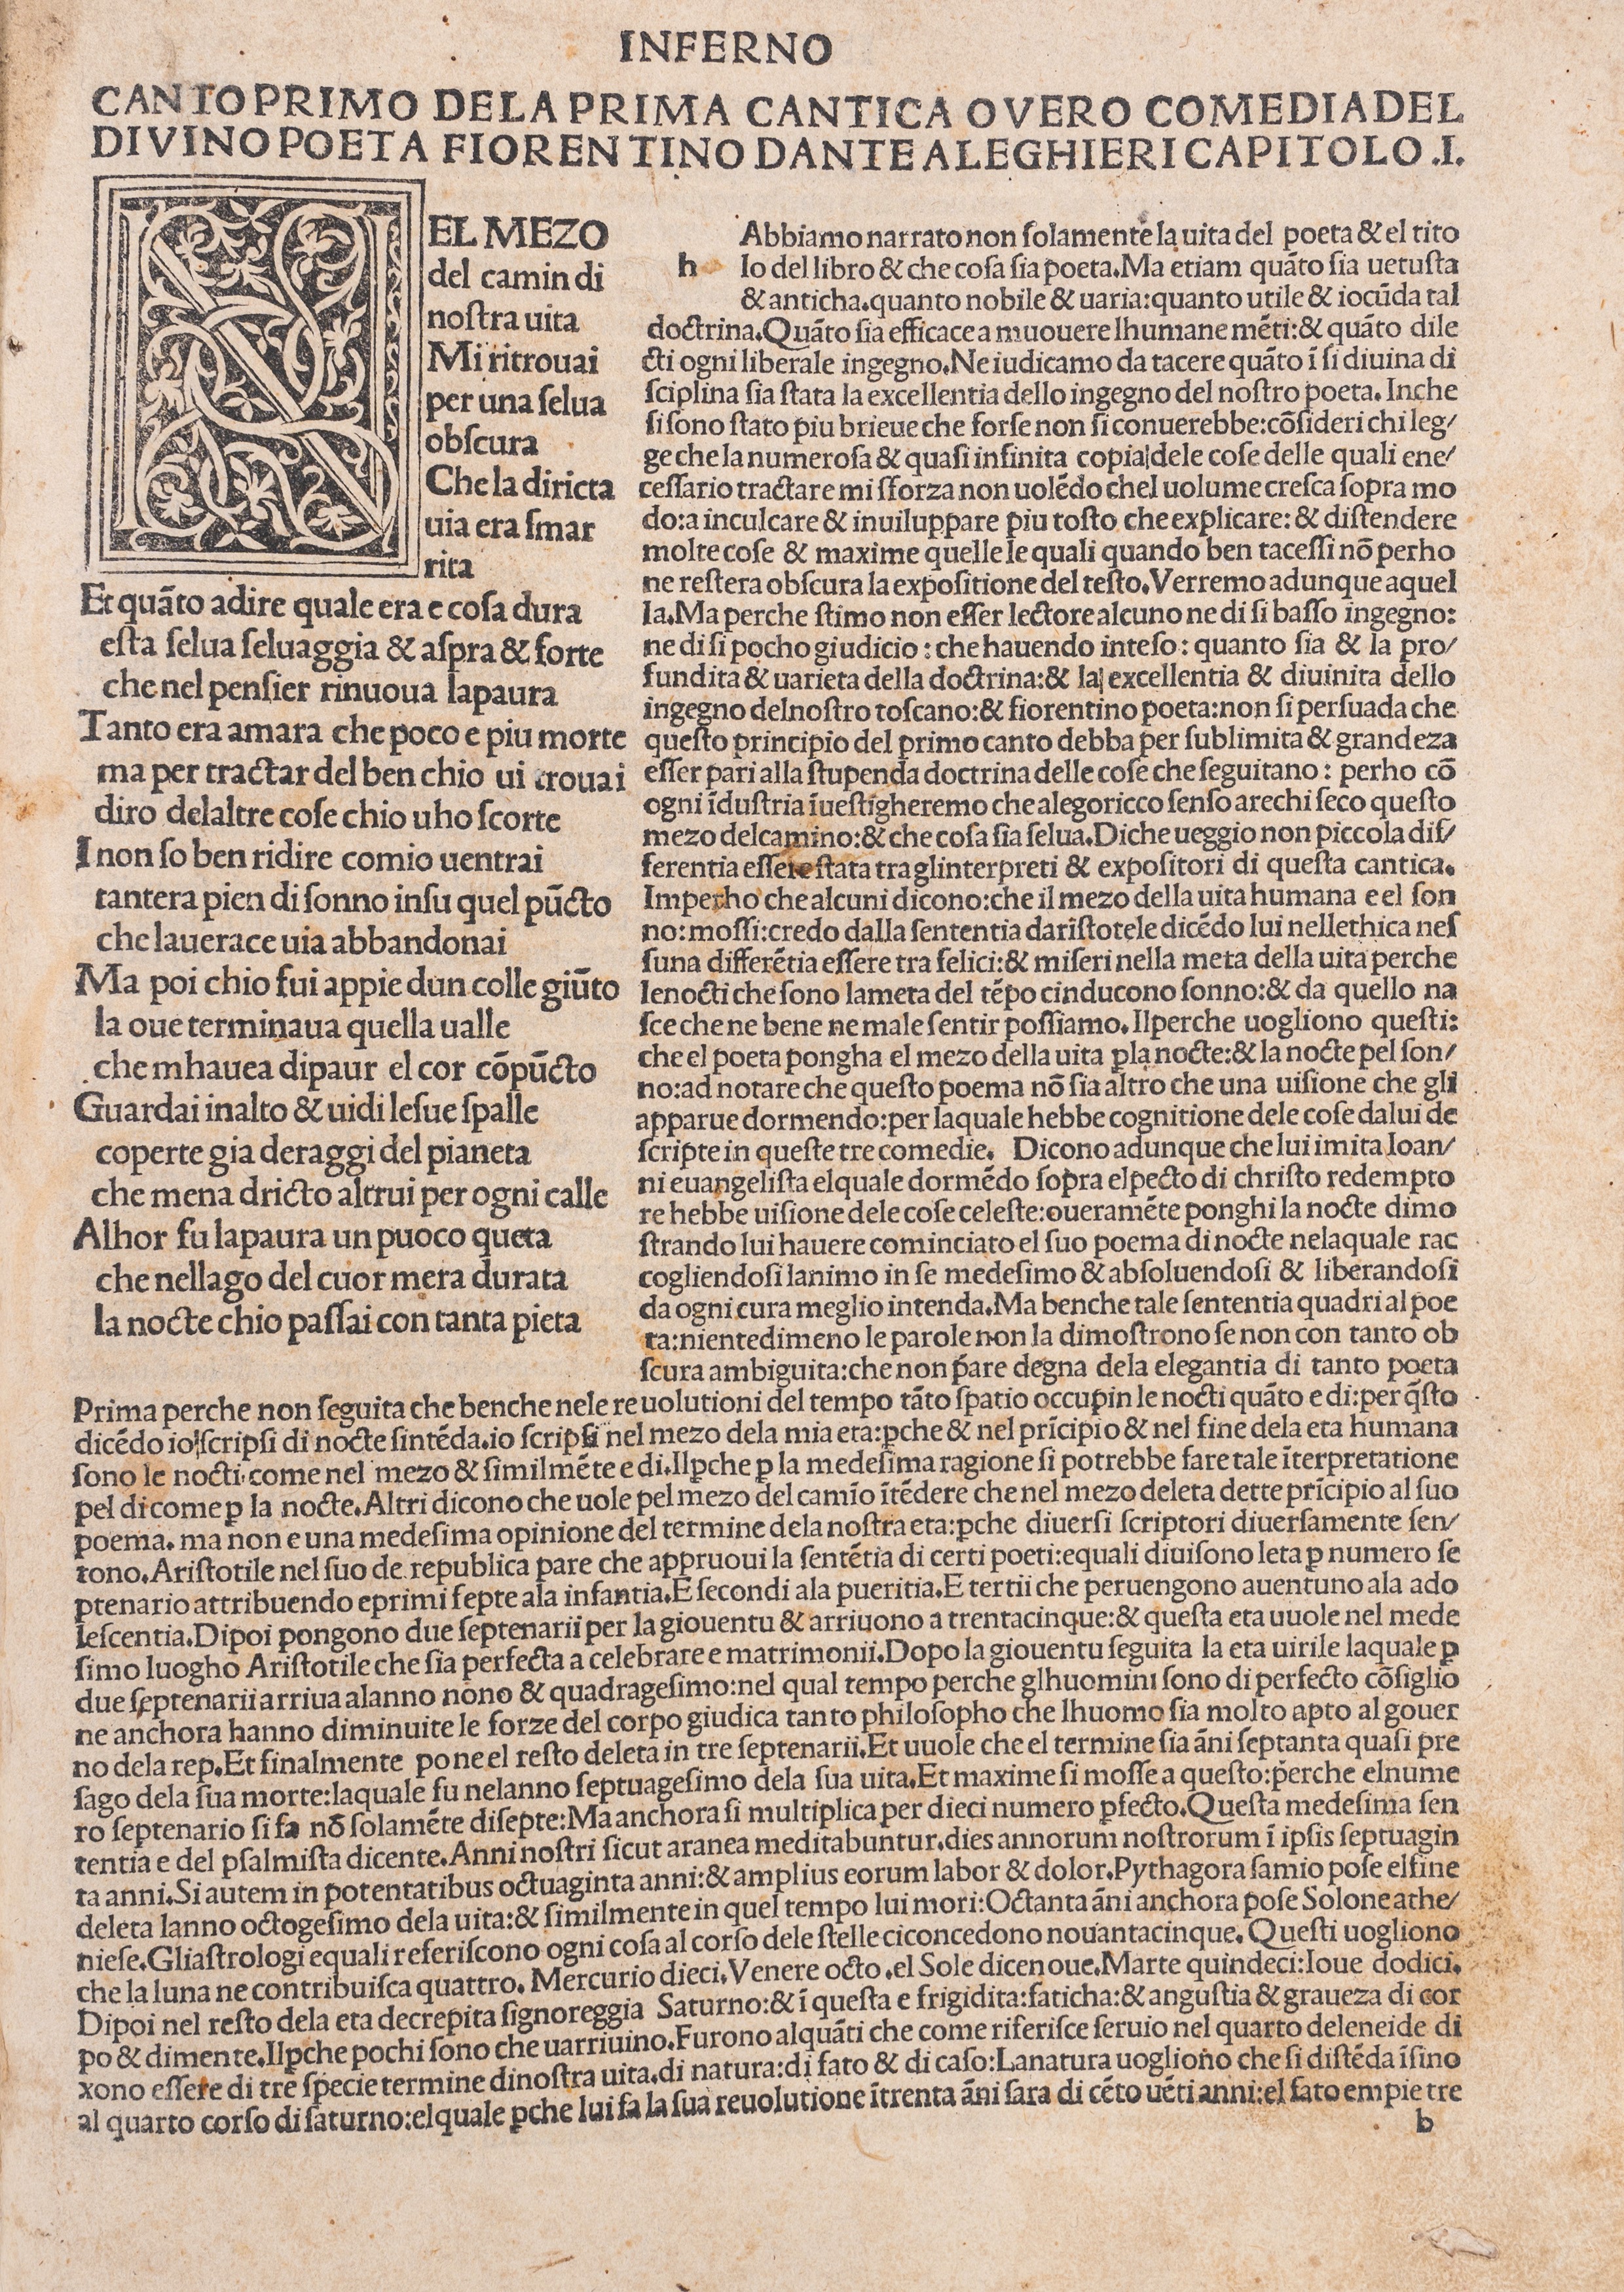 INFERNO
CANTO PRIMO DE LA PRIMA CANTICA OVERO COMEDIA DEL
DIVINO POETA FIORENTINO DANTE ALEGHIERI CAPITOLO .I.
N
EL MEZO
del camin di
noſtra uita
Mi ritrouai
per una ſelua
obſcura
Che la diricta
uia era ſmar
rita
Et quãto adire quale era e coſa dura
eſta ſelua ſeluaggia & aſpra & forte
che nel penſier rinuoua lapaura
Tanto era amara che poco e piu morte
ma per tractar del ben chio ui trouai
diro delaltre coſe chio uho ſcorte
I non ſo ben ridire comio uentrai
tantera pien di ſonno inſu quel pũcto
che lauerace uia abbandonai
Ma poi chio fui appie dun colle giũto
la oue terminaua quella ualle
che mhauea dipaur el cor cõpũcto
Guardai inalto & uidi leſue ſpalle
coperte gia deraggi del pianeta
che mena dricto altrui per ogni calle
Alhor fu lapaura un puoco queta
che nellago del cuor mera durata
la nocte chio paſſai con tanta pieta
h Abbiamo narrato non ſolamente la uita del poeta & el tito
lo del libro & che coſa ſia poeta.Ma etiam quãto ſia uetuſta
& anticha.quanto nobile & uaria:quanto utile & iocũda tal
doctrina.Quãto ſia efficace a muouere lhumane mẽti:& quãto dile
cti ogni liberale ingegno.Ne iudicamo da tacere quãto ĩ ſi diuina di
ſciplina ſia ſtata la excellentia dello ingegno del noſtro poeta.Inche
ſi ſono ſtato piu brieue che forſe non ſi conuerebbe:cõſideri chi leg/
ge che la numeroſa & quaſi infinita copia dele coſe delle quali ene/
ceſſario tractare mi ſforza non uolẽdo chel uolume creſca ſopra mo
do:a inculcare & inuiluppare piu toſto che explicare:& diſtendere
molte coſe & maxime quelle le quali quando ben taceſſi nõ perho
ne reſtera obſcura la expoſitione del teſto.Verremo adunque aquel
la.Ma perche ſtimo non eſſer lectore alcuno ne di ſi baſſo ingegno:
ne di ſi pocho giudicio : che hauendo inteſo : quanto ſia & la pro/
fundita & uarieta della doctrina:& la excellentia & diuinita dello
ingegno delnoſtro toſcano:& fiorentino poeta:non ſi perſuada che
queſto principio del primo canto debba per ſublimita & grandeza
eſſer pari alla ſtupenda doctrina delle coſe che ſeguitano : perho cõ
ogni ĩduſtria ĩueſtigheremo che alegoricco ſenſo arechi ſeco queſto
mezo delcamino:& che coſa ſia ſelua.Diche ueggio non piccola dif/
ferentia eſſere ſtata tra glinterpreti & expoſitori di queſta cantica.
Imperho che alcuni dicono:che il mezo della uita humana e el ſon
no:moſſi:credo dalla ſententia dariſtotele dicẽdo lui nellethica neſ
ſuna differẽtia eſſere tra felici:& miſeri nella meta della uita perche
lenocti che ſono lameta del tẽpo cinducono ſonno:& da quello na
ſce che ne bene ne male ſentir poſſiamo.Ilperche uogliono queſti:
che el poeta pongha el mezo della uita ꝑ la nocte:& la nocte pel ſon/
no:ad notare che queſto poema nõ ſia altro che una uiſione che gli
apparue dormendo:per laquale hebbe cognitione dele coſe dalui de
ſcripte in queſte tre comedie. Dicono adunque che lui imita Ioan/
ni euangeliſta elquale dormẽdo ſopra el pecto di chriſto redempto
re hebbe uiſione dele coſe celeſte:oueramẽte ponghi la nocte dimo
ſtrando lui hauere cominciato el ſuo poema di nocte nelaquale rac
cogliendoſi lanimo in ſe medeſimo & abſoluendoſi & liberandoſi
da ogni cura meglio intenda.Ma benche tale ſententia quadri al poe
ta:nientedimeno le parole non la dimoſtrono ſe non con tanto ob
ſcura ambiguita:che non p̃are degna dela elegantia di tanto poeta
Prima perche non ſeguita che benche nele reuolutioni del tempo tãto ſpatio occupin le nocti quãto e di:per q̃ſto
dicẽdo io ſcripſi di nocte ſintẽda.io ſcripſi nel mezo dela mia eta:ꝑche & nel prĩcipio & nel fine dela eta humana
ſono le nocti come nel mezo & ſimilmẽte e di.Ilꝑche ꝑ la medeſima ragione ſi potrebbe fare tale ĩterpretatione
pel di come ꝑ la nocte.Altri dicono che uole pel mezo del camĩo ĩtẽdere che nel mezo deleta dette prĩcipio al ſuo
poema. ma non e una medeſima opinione del termine dela noſtra eta:ꝑche diuerſi ſcriptori diuerſamente ſen/
tono.Ariſtotile nel ſuo de republica pare che appruoui la ſentẽtia di certi poeti:equali diuiſono leta ꝑ numero ſe
ptenario attribuendo eprimi ſepte ala infantia.E ſecondi ala pueritia.E tertii che peruengono auentuno ala ado
leſcentia.Dipoi pongono due ſeptenarii per la giouentu & arriuono a trentacinque:& queſta eta uuole nel mede
ſimo luogho Ariſtotile che ſia perfecta a celebrare e matrimonii.Dopo la giouentu ſeguita la eta uirile laquale ꝑ
due ſeptenarii arriua alanno nono & quadrageſimo:nel qual tempo perche glhuomini ſono di perfecto cõſiglio
ne anchora hanno diminuite le forze del corpo giudica tanto philoſopho che lhuomo ſia molto apto al gouer
no dela rep.Et finalmente pone el reſto deleta in tre ſeptenarii.Et uuole che el termine ſia ãni ſeptanta quaſi pre
ſago dela ſua morte:laquale fu nelanno ſeptuageſimo dela ſua uita.Et maxime ſi moſſe a queſto:perche elnume
ro ſeptenario ſi fa nõ ſolamẽte diſepte:Ma anchora ſi multiplica per dieci numero ꝑfecto.Queſta medeſima ſen
tentia e del pſalmiſta dicente.Anni noſtri ſicut aranea meditabuntur.dies annorum noſtrorum ĩ ipſis ſeptuagin
ta anni.Si autem in potentatibus octuaginta anni:& amplius eorum labor & dolor.Pythagora ſamio poſe elfine
deleta lanno octogeſimo dela uita:& ſimilmente in quel tempo lui mori:Octanta ãni anchora poſe Solone athe/
nieſe.Gliaſtrologi equali referiſcono ogni coſa al corſo dele ſtelle ciconcedono nouantacinque. Queſti uogliono
che la luna ne contribuiſca quattro. Mercurio dieci.Venere octo.el Sole dicenoue.Marte quindeci:Ioue dodici.
Dipoi nel reſto dela eta decrepita ſignoreggia Saturno:& ĩ queſta e frigidita:faticha:& anguſtia & graueza di cor
po & dimente.Ilꝑche pochi ſono che uarriuino.Furono alquãti che come riferiſce ſeruio nel quarto deleneide di
xono eſſere di tre ſpecie termine dinoſtra uita.di natura:di fato & di caſo:Lanatura uogliono che ſi diſtẽda ĩſino
al quarto corſo di ſaturno:elquale ꝑche lui fa la ſua reuolutione ĩtrenta ãni ſara di cẽto uẽti anni:el fato empie tre
b